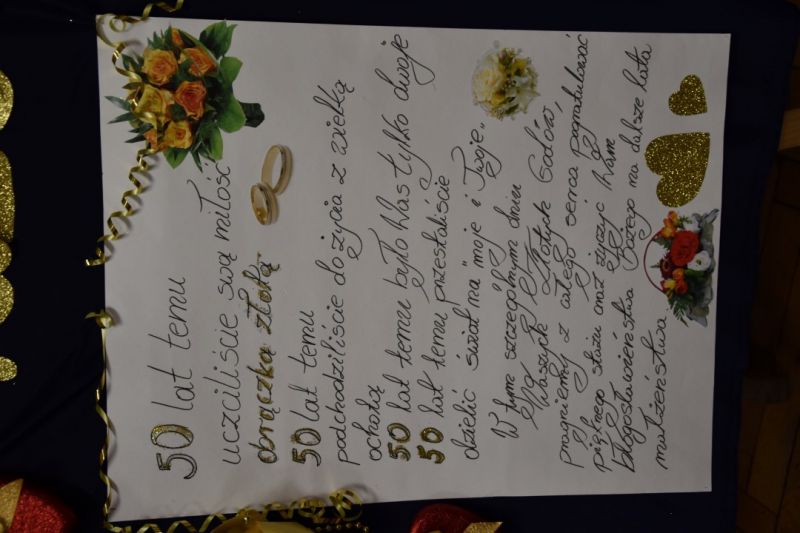 50 lat temu
uczciliście swą miłość
obrączką złotą
50 lat temu
podchodziliście do życia z wielką
ochotą
50 lat temu było Was tylko dwoje
50 lat temu przestaliście
dzielić świat na "moje i Twoje"
W tym szczególnym dniu
Waszych Złotych Godów,
pragniemy z całego serca pogratulować
pięknego stażu oraz życzyć Wam
błogosławieństwa Bożego na dalsze lata
małżeństwa